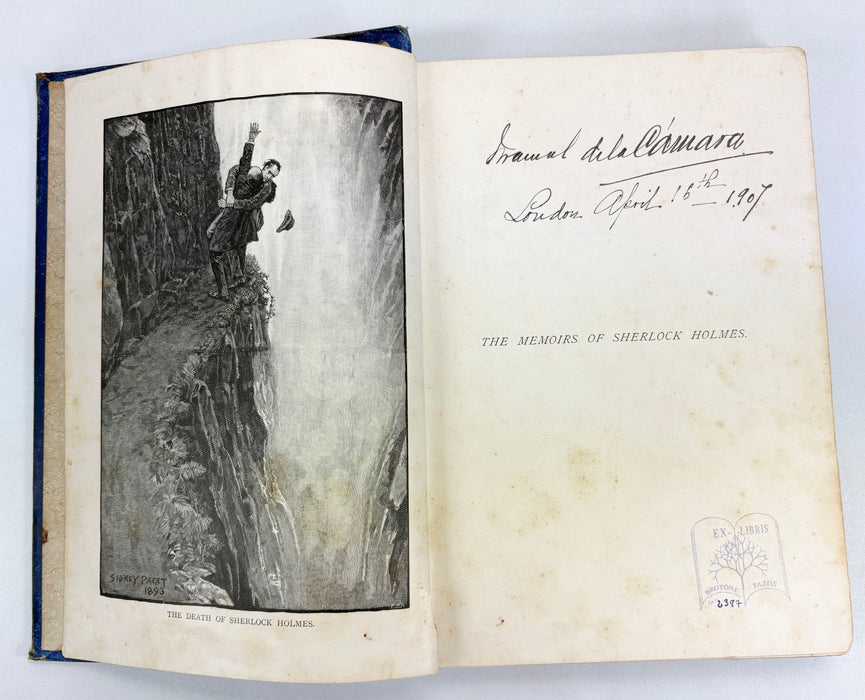 SIDNEY PAGET
1893
THE DEATH OF SHERLOCK HOLMES.
de la Cámara
London April 16th 1907.
THE MEMOIRS OF SHERLOCK HOLMES.
EX-LIBRIS
BROTONS PAZOS
2387